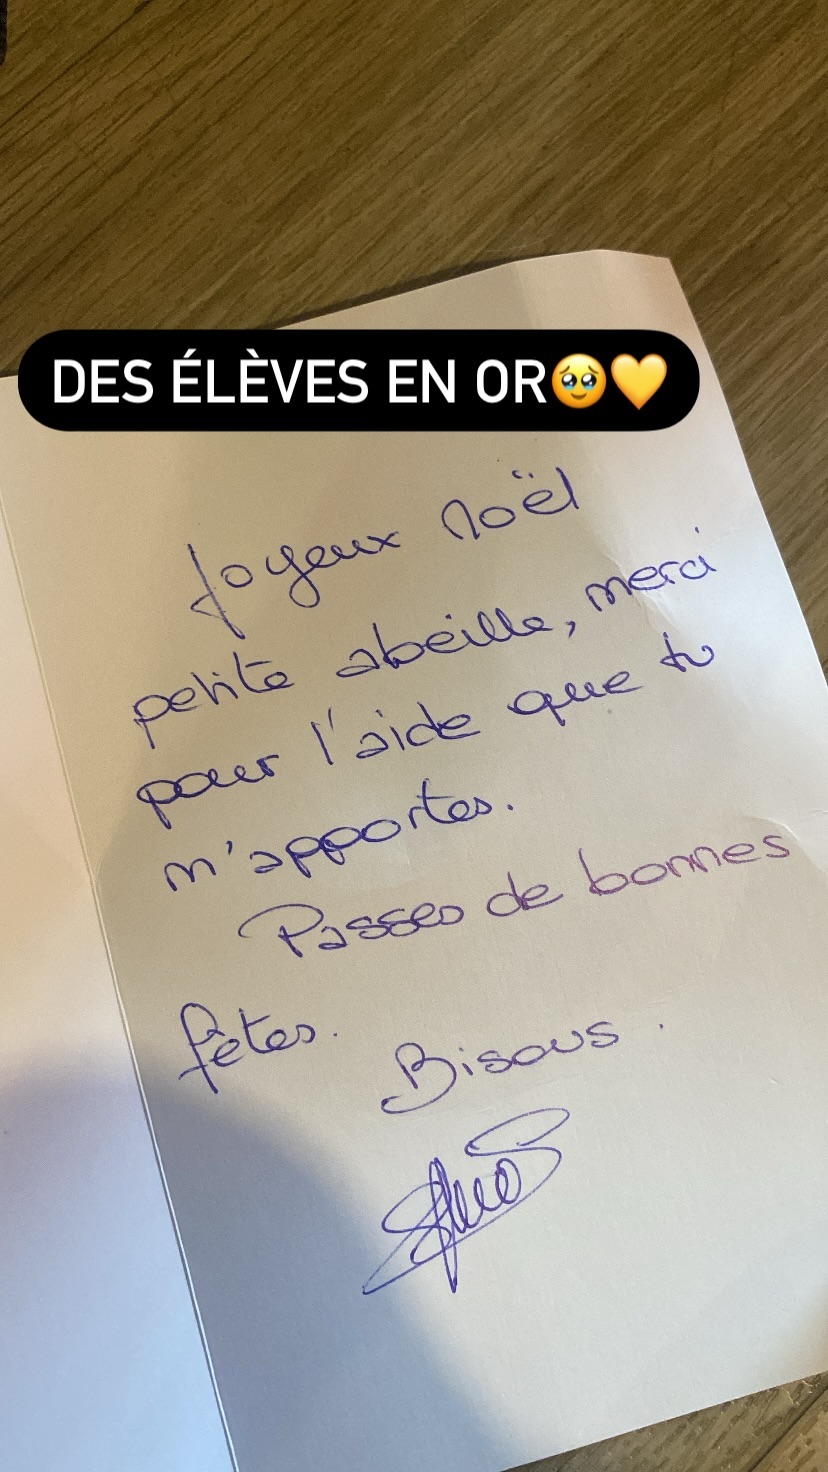 DES ÉLÈVES EN OR🥹💛
Joyeux Noël
petite abeille, merci
pour l'aide que tu
m'apportes.
Passes de bonnes
fêtes.
Bisous.